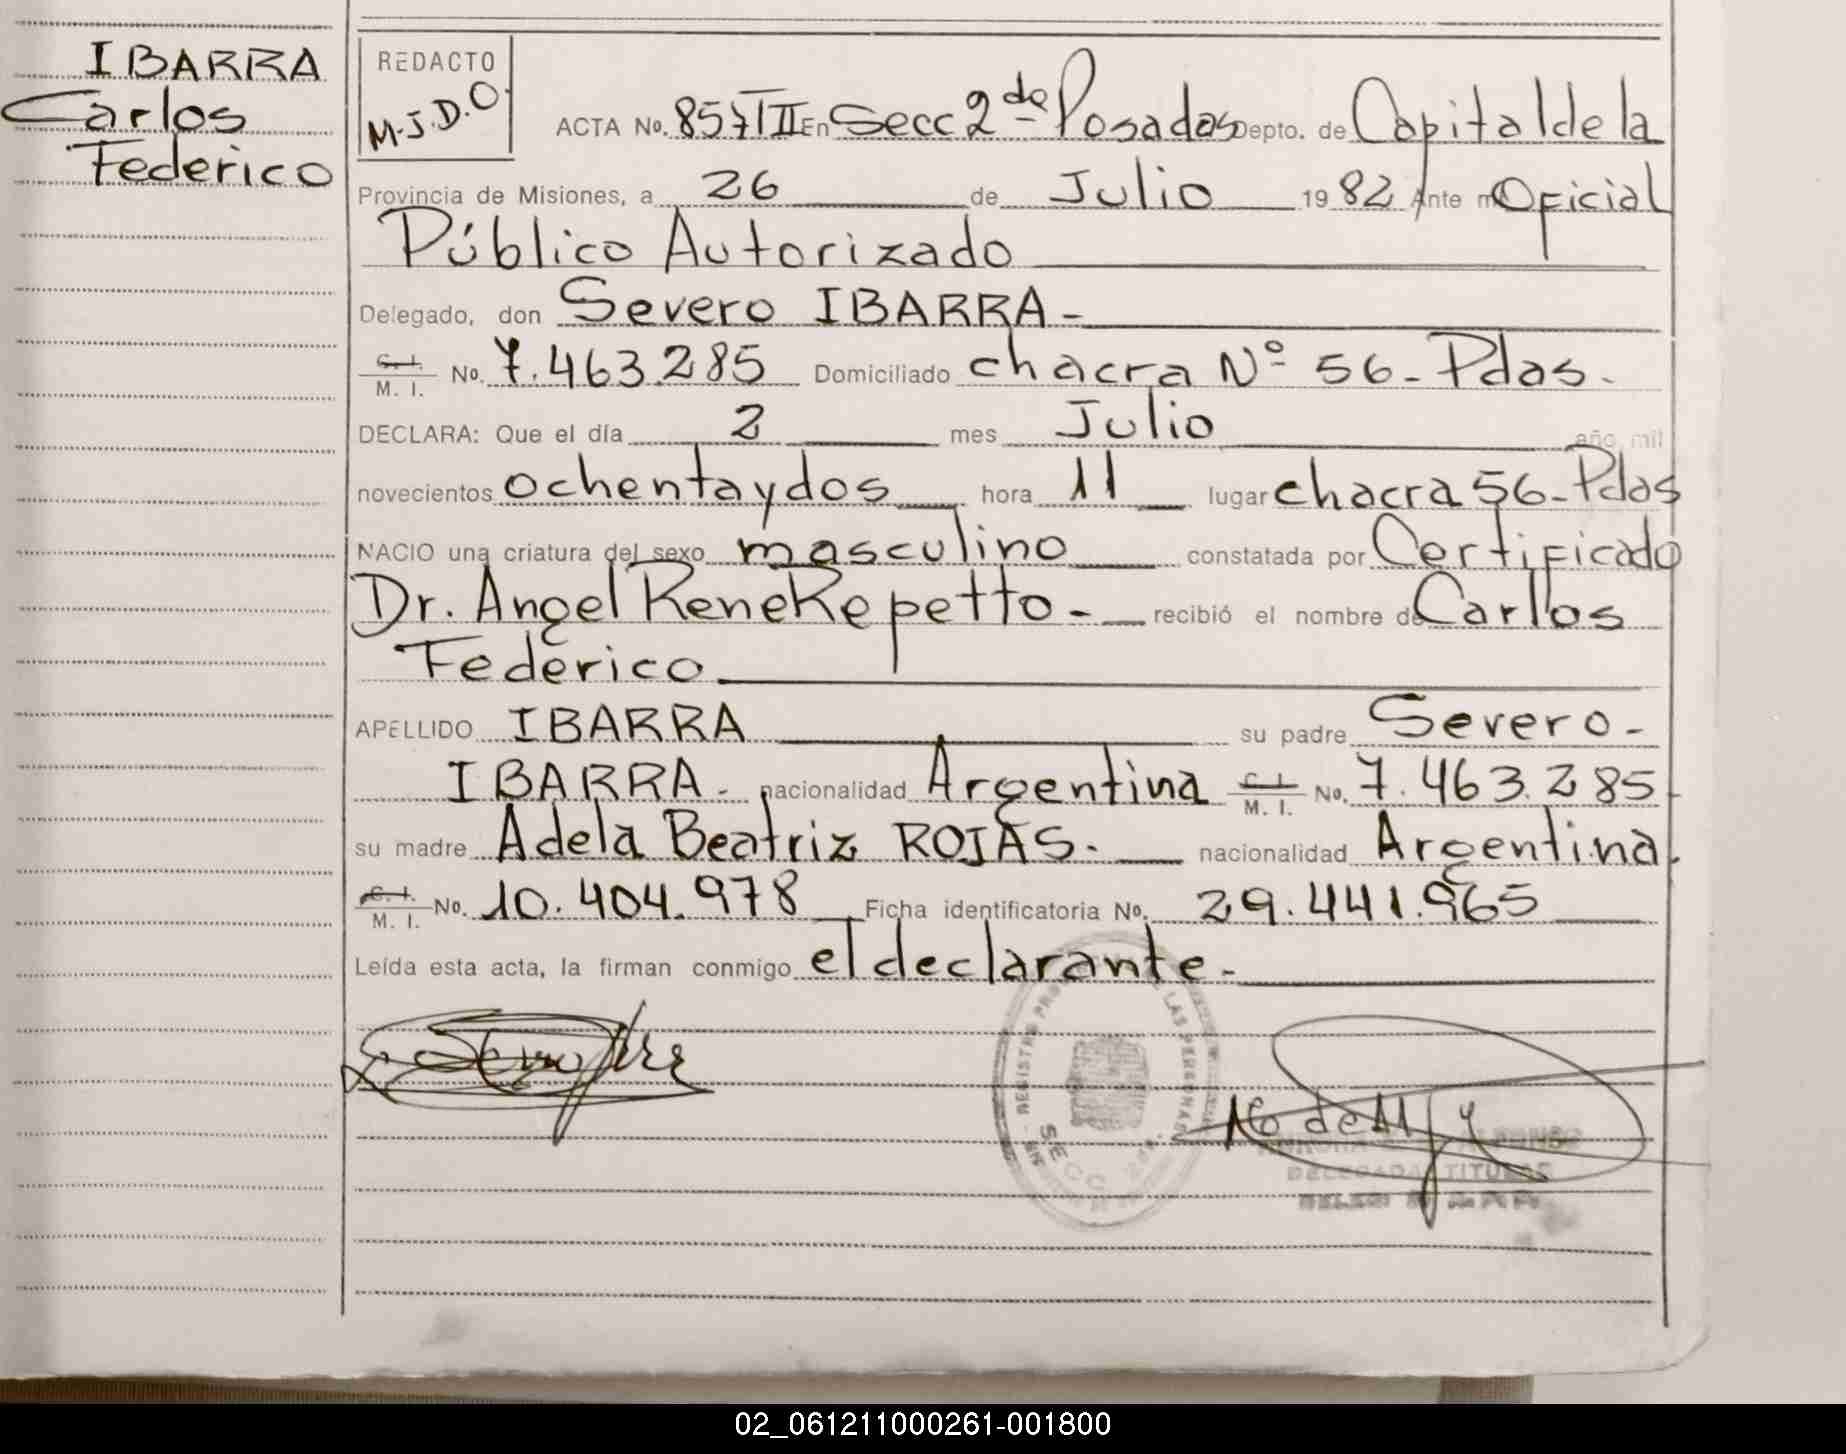 IBARRA
Carlos
Federico
REDACTO
M.J.D.O.
ACTA No. 857 T II En Secc 2da Posadas Depto. de Capital de la
Provincia de Misiones, a 26 de Julio 1982 Ante mi Oficial
Público Autorizado
Delegado, don Severo IBARRA -
C. I. M. I. No. 7.463.285 Domiciliado chacra Nº 56 - Pdas.
DECLARA: Que el día 2 mes Julio año mil
novecientos ochentaydos hora 11 lugar chacra 56 - Pdas
NACIO una criatura del sexo masculino constatada por Certificado
Dr. Angel Rene Repetto - recibió el nombre de Carlos
Federico
APELLIDO IBARRA su padre Severo -
IBARRA - nacionalidad Argentina C. I. M. I. No. 7.463.285
su madre Adela Beatriz ROJAS. nacionalidad Argentina.
C. I. M. I. No. 10.404.978 Ficha identificatoria No. 29.441.965
Leída esta acta, la firman conmigo el declarante -
REGISTRO LAS PERSONAS
SECC
DELEGADA TITULAR
02_061211000261-001800